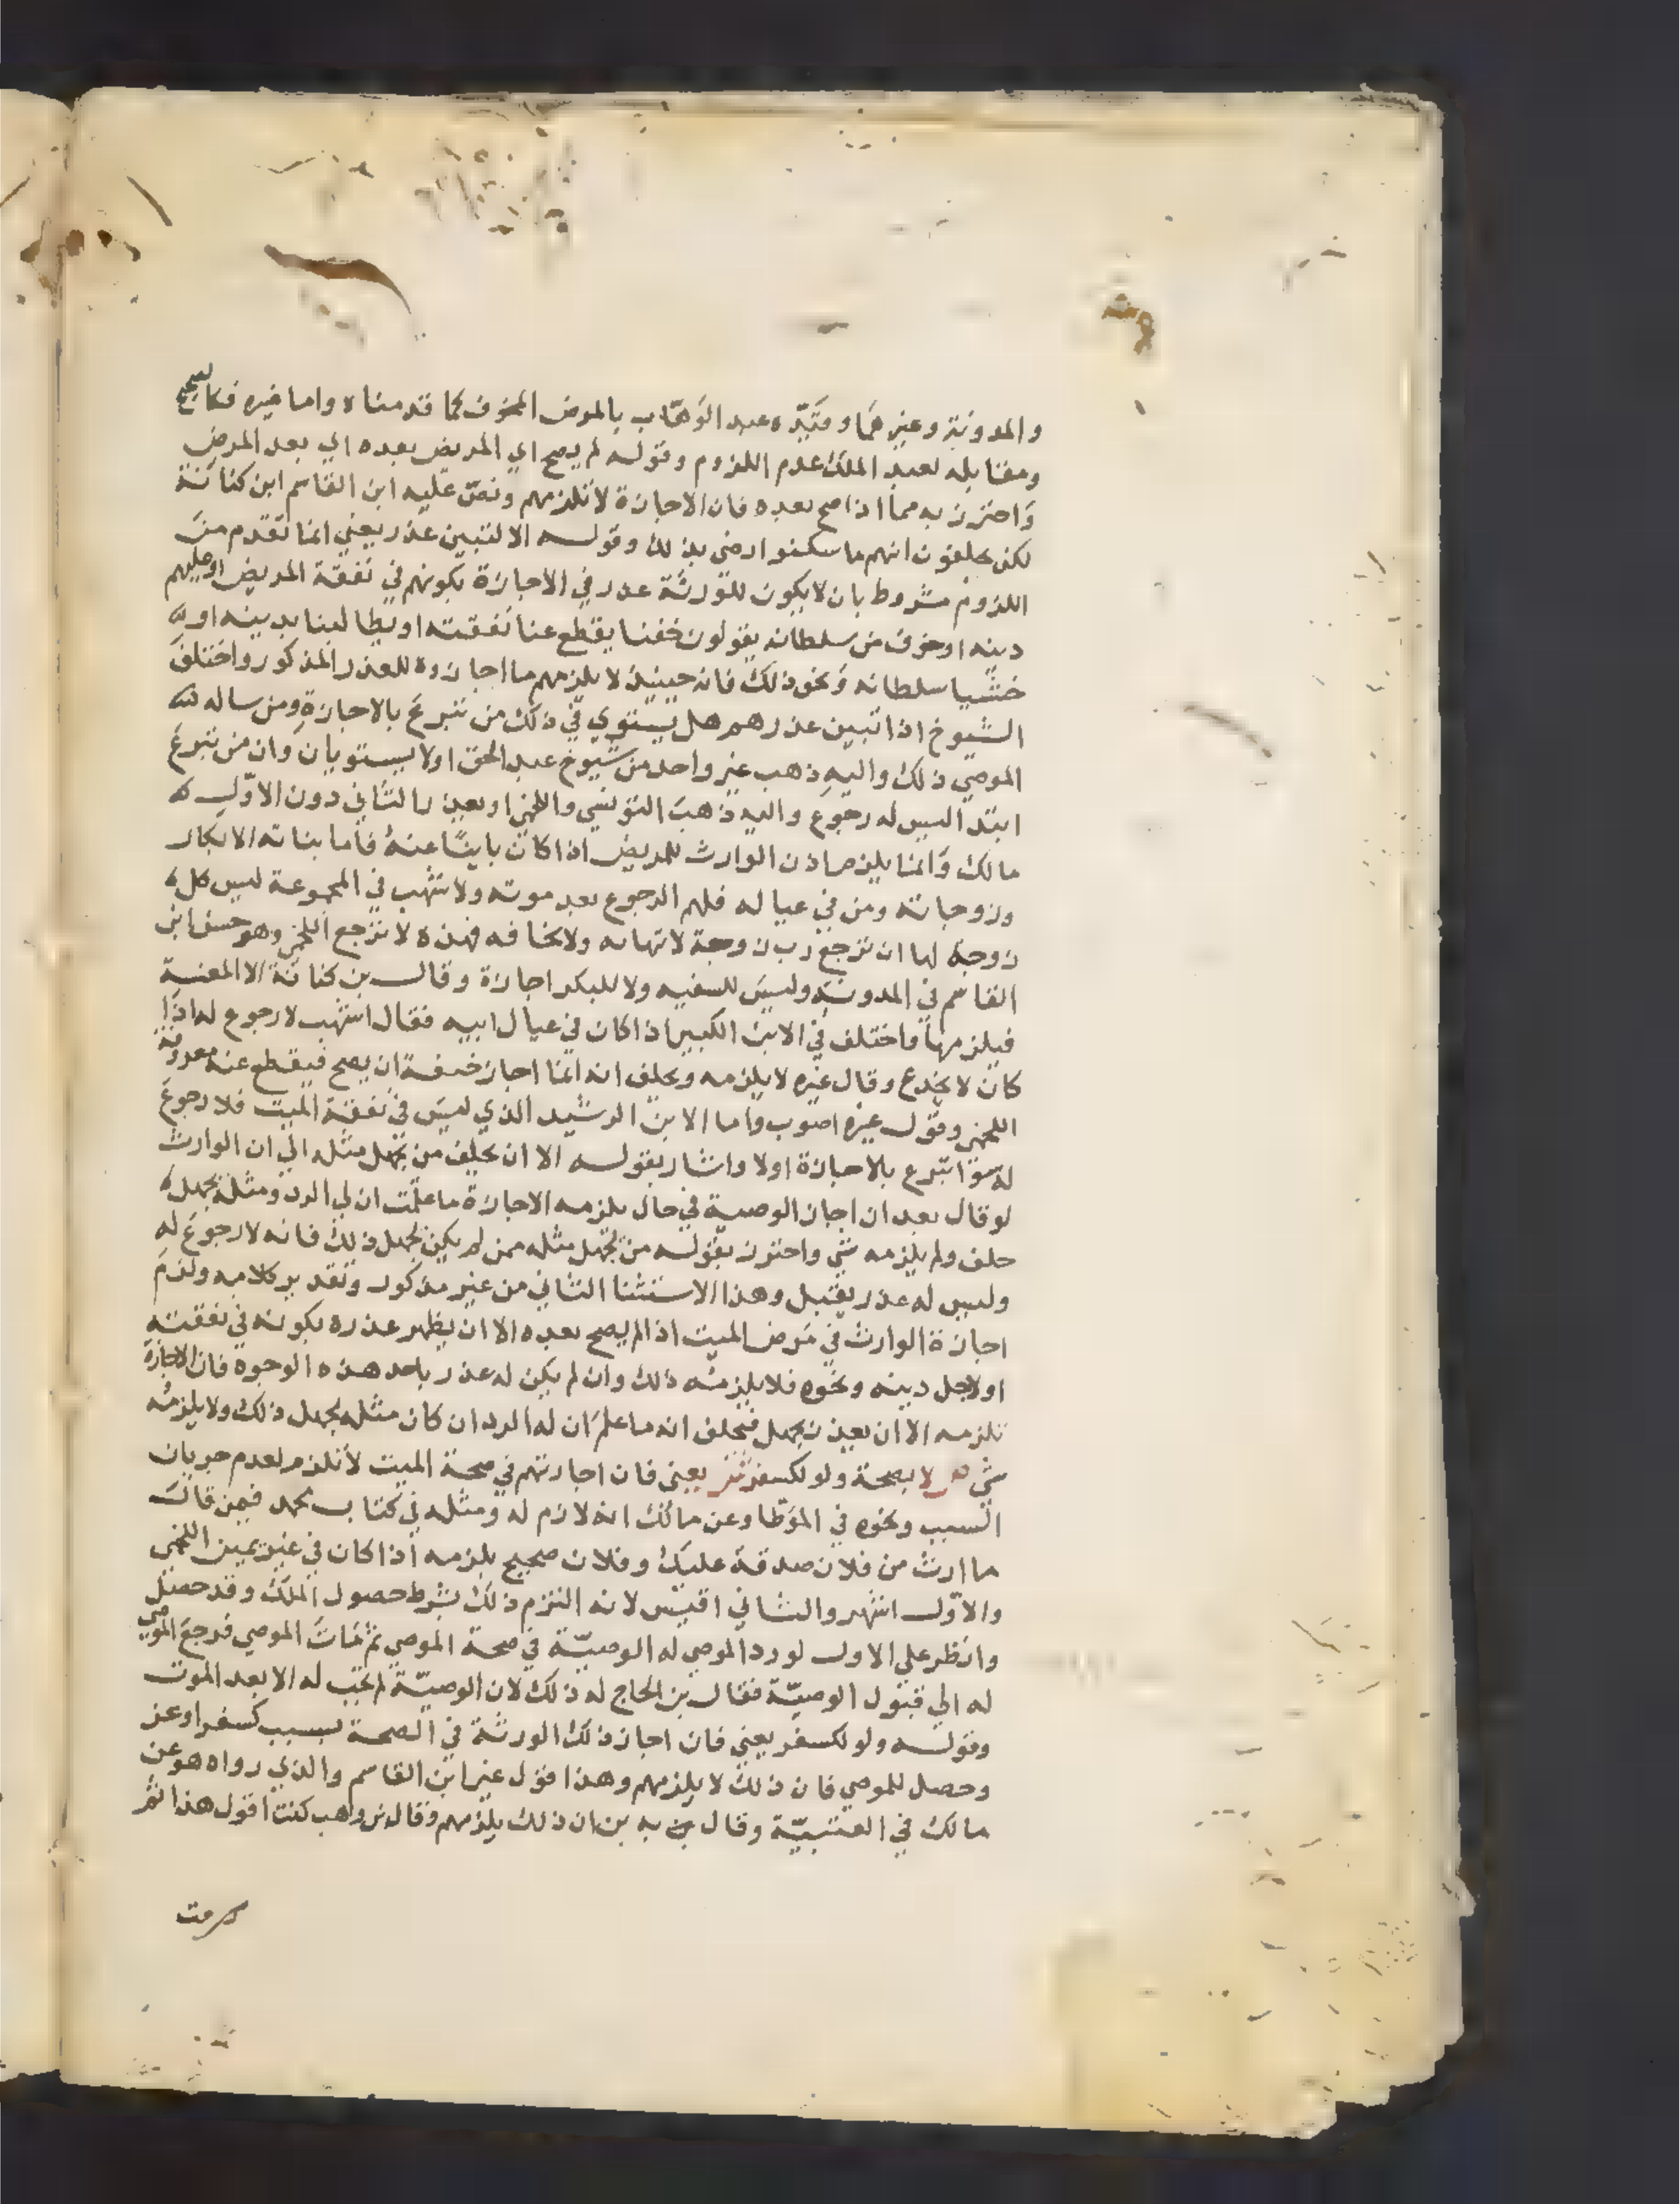 والمدونة وغيرهما وقيّده عبد الوهّاب بالمرض المخوف كما قدمناه واما غيره فكالصحيح
ومقابله لعبد الملك عدم اللزوم وقوله لم يصح اي المريض بعده اي بعد المرض
واحترز به مما اذا صح بعده فان الاجازة لا تلزمهم ونص عليه ابن القاسم ابن كنانة
لكن يحلفون انهم ما سكتوا رضى بذلك وقوله الا لتبين عذر يعني انما تقدم من
اللزوم مشروط بان لا يكون للورثة عذر في الاجازة بكونهم في نفقة المريض او عليهم
دينه او خوف من سلطانه يقولون خفنا يقطع عنا نفقته او يطالبنا بدينه او
خشيا سلطانه ونحو ذلك فانه حينيذ لا يلزمهم ما اجازوه للعذر المذكور واختلف
الشيوخ اذا تبين عذرهم هل يستوي في ذلك من تبرع بالاجازة ومن ساله
الموصي ذلك واليه ذهب غير واحد من شيوخ عبد الحق او لا يستويان وان من تبرع
ابتدا ليس له رجوع واليه ذهب التونسي واللخمي او يعذر بالثاني دون الاول
مالك وانما يلزم اذن الوارث للمريض اذا كان باينا عنه فاما بناته الابكار
وزوجاته ومن في عياله فلهم الرجوع بعد موته ولاشهب في المجموعة ليس كل
زوجة لها ان ترجع رب زوجة لا تهابه ولا تخافه فهذه لا ترجع اللخمي وهو حسن ابن
القاسم في المدونة وليس للسفيه ولا للبكر اجازة وقال بن كنانة الا المعنسة
فيلزمها واختلف في الابن الكبير اذا كان في عيال ابيه فقال اشهب لا رجوع له اذا
كان لا يخدع وقال غيره لا يلزمه ويحلف انه انما اجاز خيفة ان يصح فيقطع عنه معروفه
اللخمي وقول غيره اصوب واما الابن الرشيد الذي ليس في نفقة الميت فلا رجوع
له سوا تبرع بالاجازة اولا واشار بقوله الا ان يحلف من يجهل مثله الي ان الوارث
لو قال بعد ان اجاز الوصية في حال يلزمه الاجازة ما علمت ان لي الرد ومثله يجهل
حلف ولم يلزمه شي واحترز بقوله من يجهل مثله ممن لم يكن يجهل ذلك فانه لا رجوع له
وليس له عذر يقبل وهذا الاستثنا الثاني من غير مذكور وتقدير كلامه ولزم
اجازة الوارث في مرض الميت اذا لم يصح بعده الا ان يظهر عذره بكونه في نفقته
او لاجل دينه ونحوه فلا يلزمه ذلك وان لم يكن له عذر باحد هذه الوجوه فان الاجازة
تلزمه الا ان يعذر بجهل فيحلف انه ما علم ان له الرد ان كان مثله يجهل ذلك ولا يلزمه
شي ص لا بصحة ولو لكسفر ش يعني فان اجازتهم في صحة الميت لا تلزم لعدم جريان
السبب ونحوه في الموطا وعن مالك انه لازم له ومثله في كتاب محمد فيمن قال
ما ارث من فلان صدقة عليك وفلان صحيح يلزمه اذا كان في غير يمين اللخمي
والاول اشهر والثاني اقيس لانه التزم ذلك بشرط حصول الملك وقد حصل
وانظر علي الاول لو رد الموصي له الوصية في صحة الموصي ثم مات الموصي فرجع الموصي
له الي قبول الوصية فقال بن الحاج له ذلك لان الوصية لم تجب له الا بعد الموت
وقوله ولو لكسفر يعني فان اجاز ذلك الورثة في الصحة بسبب كسفر او غز
وحصل للموصي فان ذلك لا يلزمهم وهذا قول غير ابن القاسم والذي رواه هو عن
مالك في العتبية وقال بن ان ذلك يلزمهم وقال بن وهب كنت اقول هذا ثم